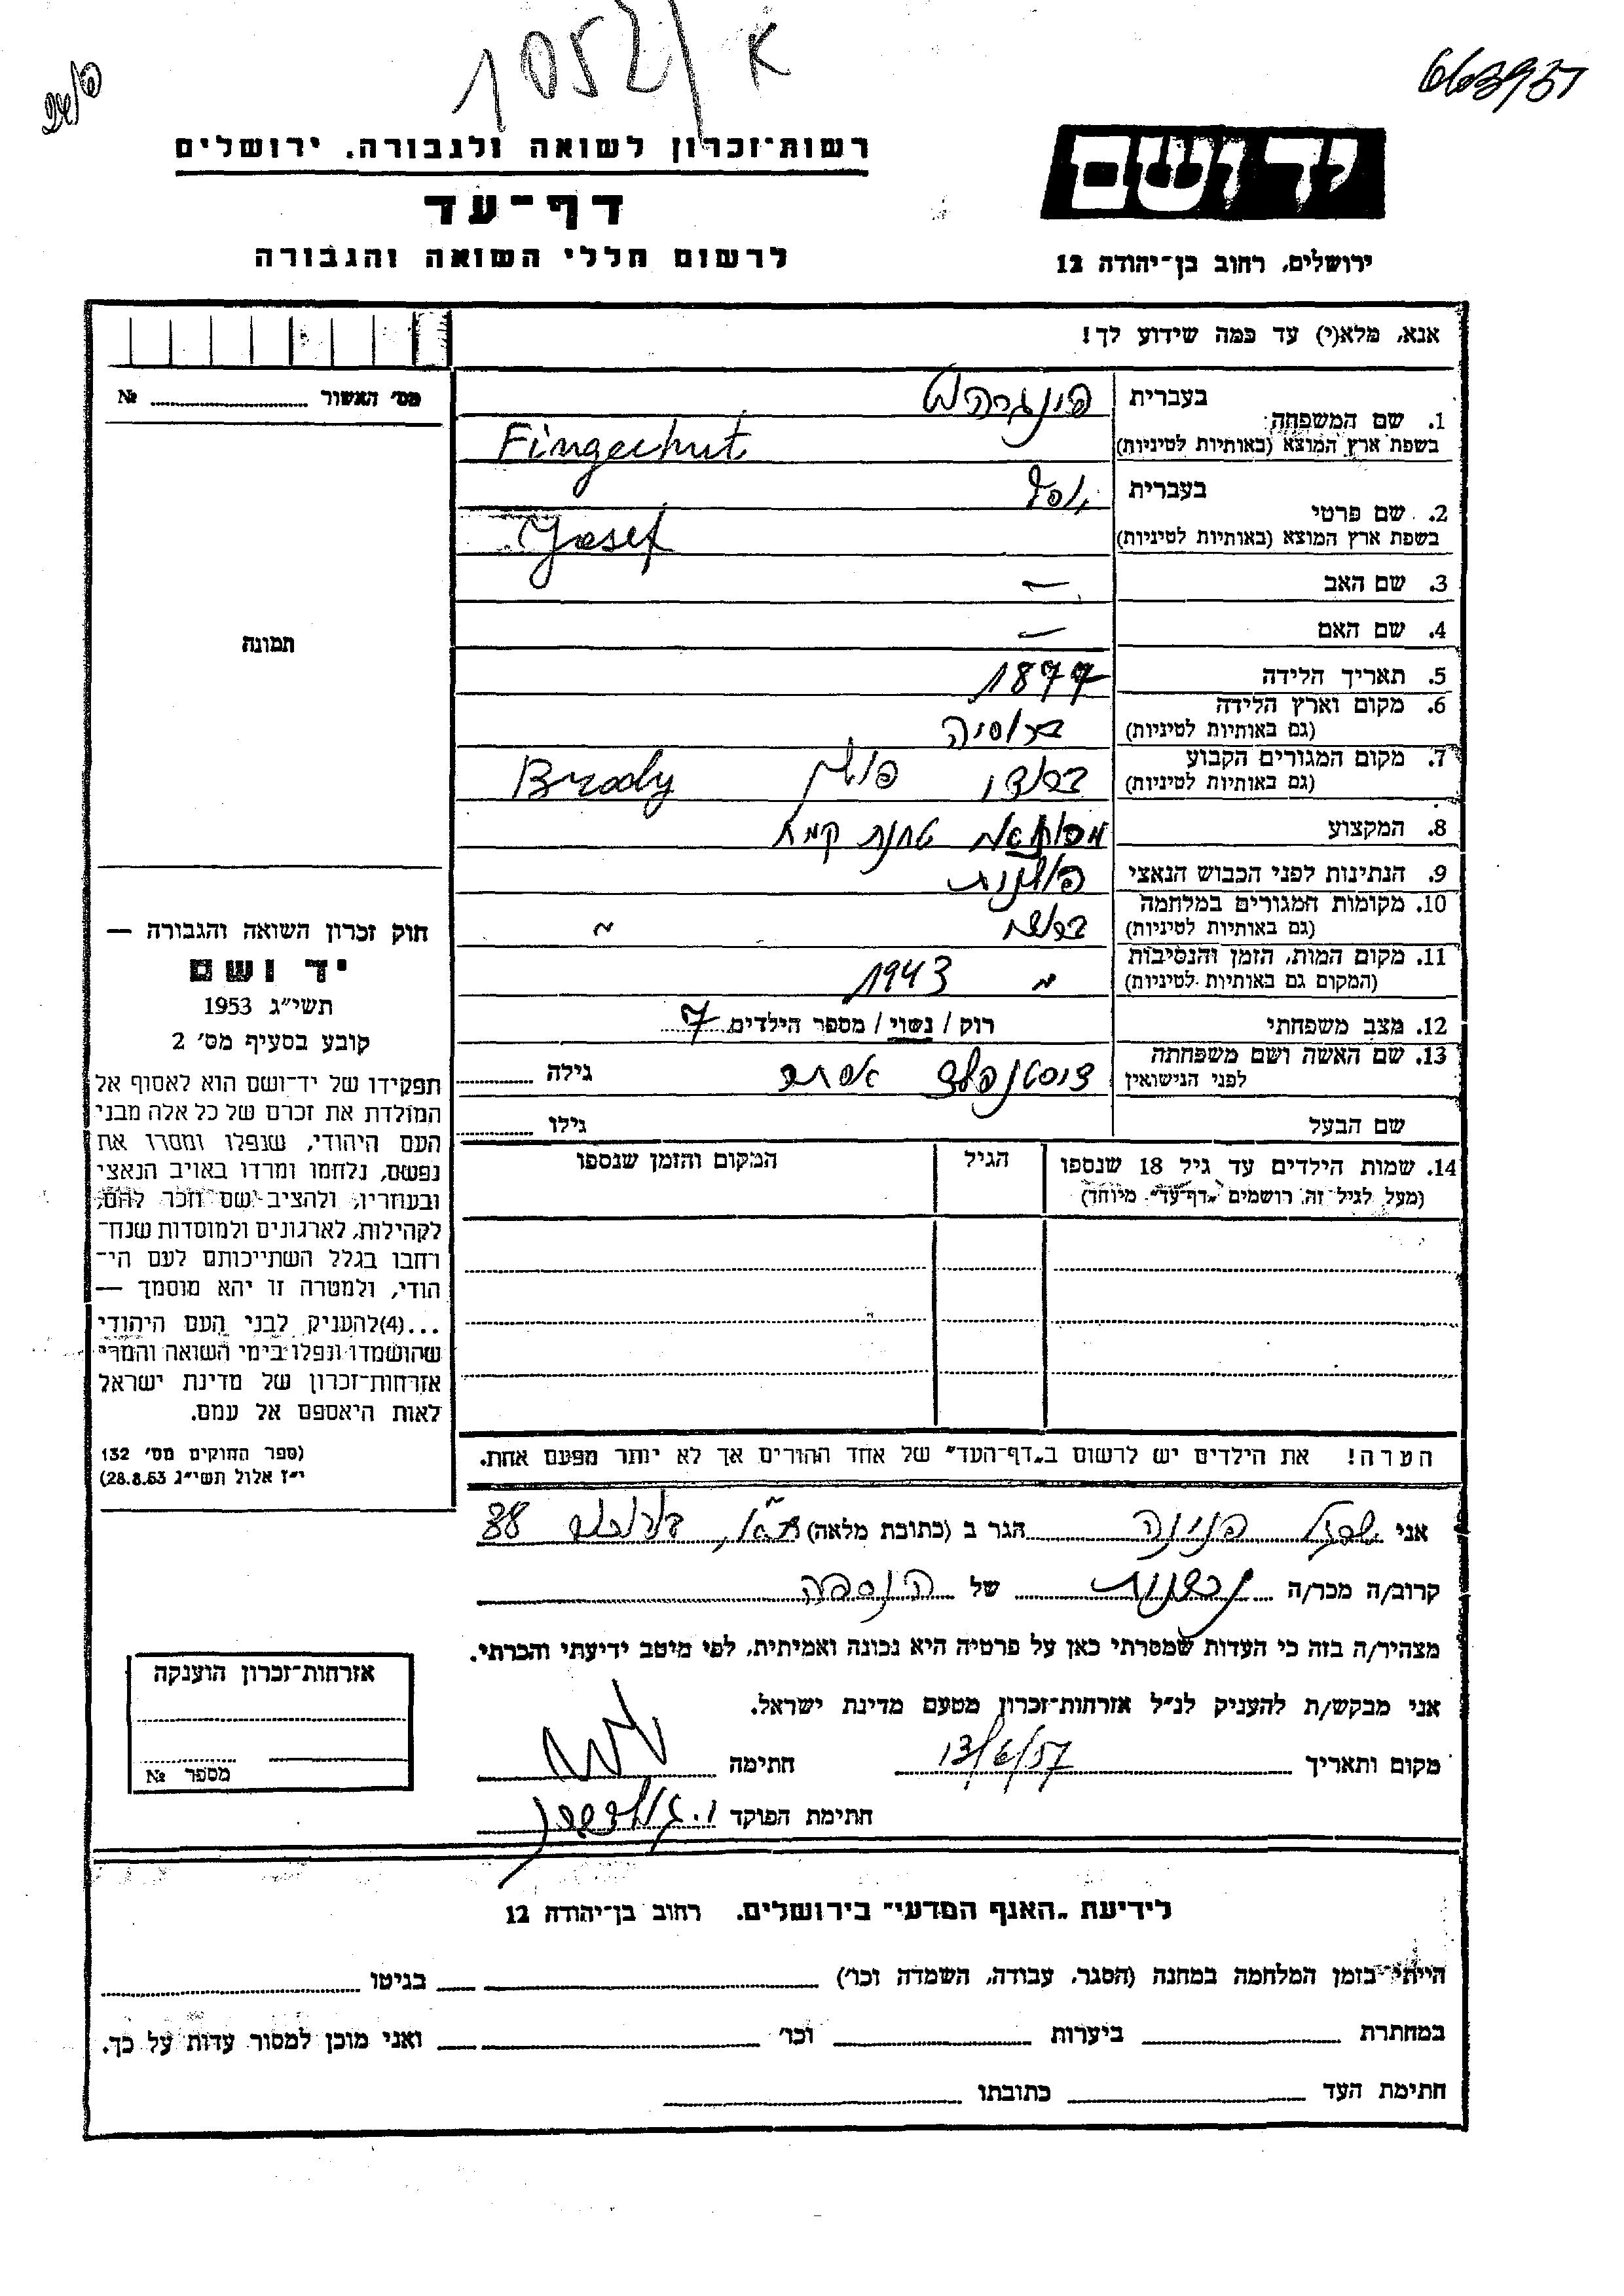 1052/א
רשות־זכרון לשואה ולגבורה. ירושלים
דף־עד
לרשום חללי השואה והגבורה
יד ושם
ירושלים, רחוב בן־יהודה 12
אנא, מלא(י) עד כמה שידוע לך!
מס׳ האשור ........ №
1. שם המשפחה: בעברית פינגרהט
בשפת ארץ המוצא (באותיות לטיניות) Fingerhut
2. שם פרטי בעברית יוסף
בשפת ארץ המוצא (באותיות לטיניות) Josef
3. שם האב —
4. שם האם —
5. תאריך הלידה 1877
6. מקום וארץ הלידה ברוסיה
(גם באותיות לטיניות)
7. מקום המגורים הקבוע ברודי פולין Brody
(גם באותיות לטיניות)
8. המקצוע טחנת קמח
9. הנתינות לפני הכבוש הנאצי פולנית
10. מקומות המגורים במלחמה
(גם באותיות לטיניות)
11. מקום המות, הזמן והנסיבות 1943
(המקום גם באותיות לטיניות)
12. מצב משפחתי רוק / נשוי / מספר הילדים 7
13. שם האשה ושם משפחתה אסתר גילה
לפני הנישואין
שם הבעל גילו
14. שמות הילדים עד גיל 18 שנספו הגיל המקום והזמן שנספו
(מעל לגיל זה רושמים „דף־עד״ מיוחד)
הערה! את הילדים יש לרשום ב„דף־העד״ של אחד ההורים אך לא יותר מפעם אחת.
תמונה
חוק זכרון השואה והגבורה —
יד ושם
תשי״ג 1953
קובע בסעיף מס׳ 2
תפקידו של יד־ושם הוא לאסוף אל
המולדת את זכרם של כל אלה מבני
העם היהודי, שנפלו ומסרו את
נפשם, נלחמו ומרדו באויב הנאצי
ובעוזריו, ולהציב שם וזכר להם,
לקהילות, לארגונים ולמוסדות שנח־
רבו בגלל השתייכותם לעם הי־
הודי, ולמטרה זו יהא מוסמך —
...(4)להעניק לבני העם היהודי
שהושמדו ונפלו בימי השואה והמרי
אזרחות־זכרון של מדינת ישראל
לאות היאספם אל עמם.
(ספר החוקים מס׳ 132
י״ז אלול תשי״ג 28.8.53)
אני פנינה הגר ב (כתובת מלאה) 38
קרוב/ה מכר/ה של הנספה
מצהיר/ה בזה כי העדות שמסרתי כאן על פרטיה היא נכונה ואמיתית, לפי מיטב ידיעתי והכרתי.
אני מבקש/ת להעניק לנ״ל אזרחות־זכרון מטעם מדינת ישראל.
מקום ותאריך 13/6/57 חתימה
חתימת הפוקד
אזרחות־זכרון הוענקה
מספר №
לידיעת „האגף המדעי״ בירושלים. רחוב בן־יהודה 12
הייתי בזמן המלחמה במחנה (הסגר, עבודה, השמדה וכו׳) בגיטו
במחתרת ביערות וכו׳ ואני מוכן למסור עדות על כך.
חתימת העד כתובתו